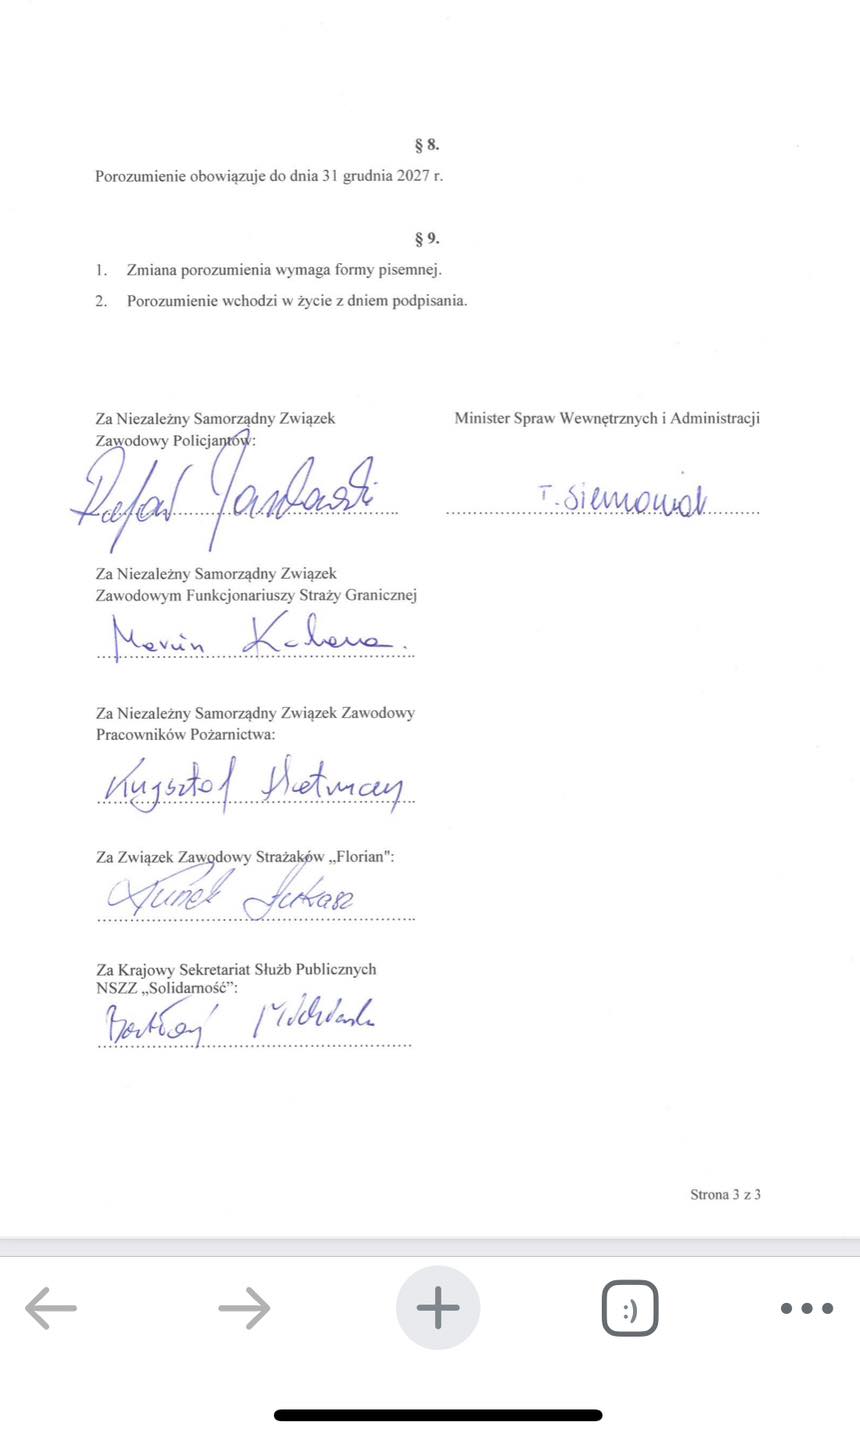 § 8.
Porozumienie obowiązuje do dnia 31 grudnia 2027 r.
§ 9.
1. Zmiana porozumienia wymaga formy pisemnej.
2. Porozumienie wchodzi w życie z dniem podpisania.
Za Niezależny Samorządny Związek
Zawodowy Policjantów:
Rafał Jankowski
Minister Spraw Wewnętrznych i Administracji
T. Siemoniak
Za Niezależny Samorządny Związek
Zawodowym Funkcjonariuszy Straży Granicznej
Marcin Kolasa
Za Niezależny Samorządny Związek Zawodowy
Pracowników Pożarnictwa:
Krzysztof Hetman
Za Związek Zawodowy Strażaków „Florian":
Łukasz
Za Krajowy Sekretariat Służb Publicznych
NSZZ „Solidarność”:
Bartłomiej
Strona 3 z 3
:)